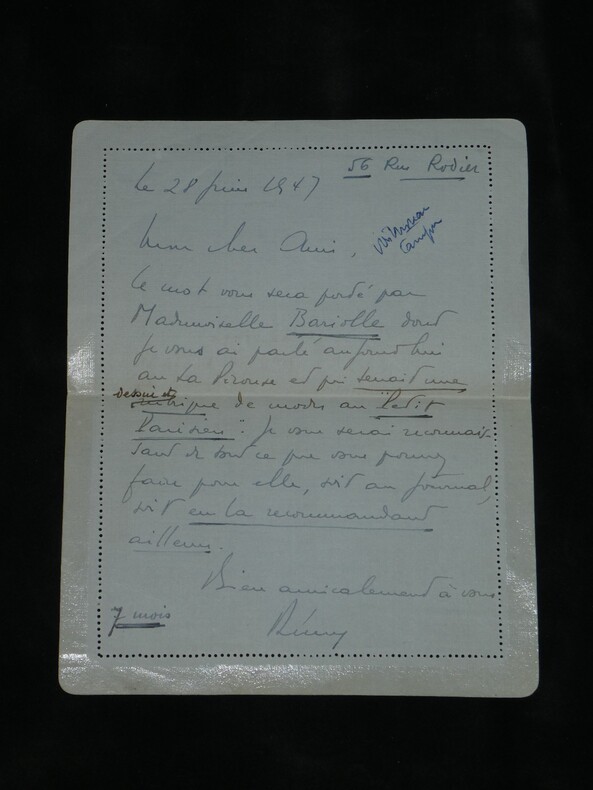 56 Rue Rodier
Le 28 juin 1947
Mon cher Ami,
Ce mot vous sera porté par
Mademoiselle Bariolle dont
je vous ai parlé aujourd'hui
au La Pérouse et qui tenait une
dessin et
rubrique de modes au "Petit
Parisien". Je vous serai reconnais-
sant de tout ce que vous pourrez
faire pour elle, soit au journal,
soit en la recommandant
ailleurs.
Bien amicalement à vous
Rémy
7 mois